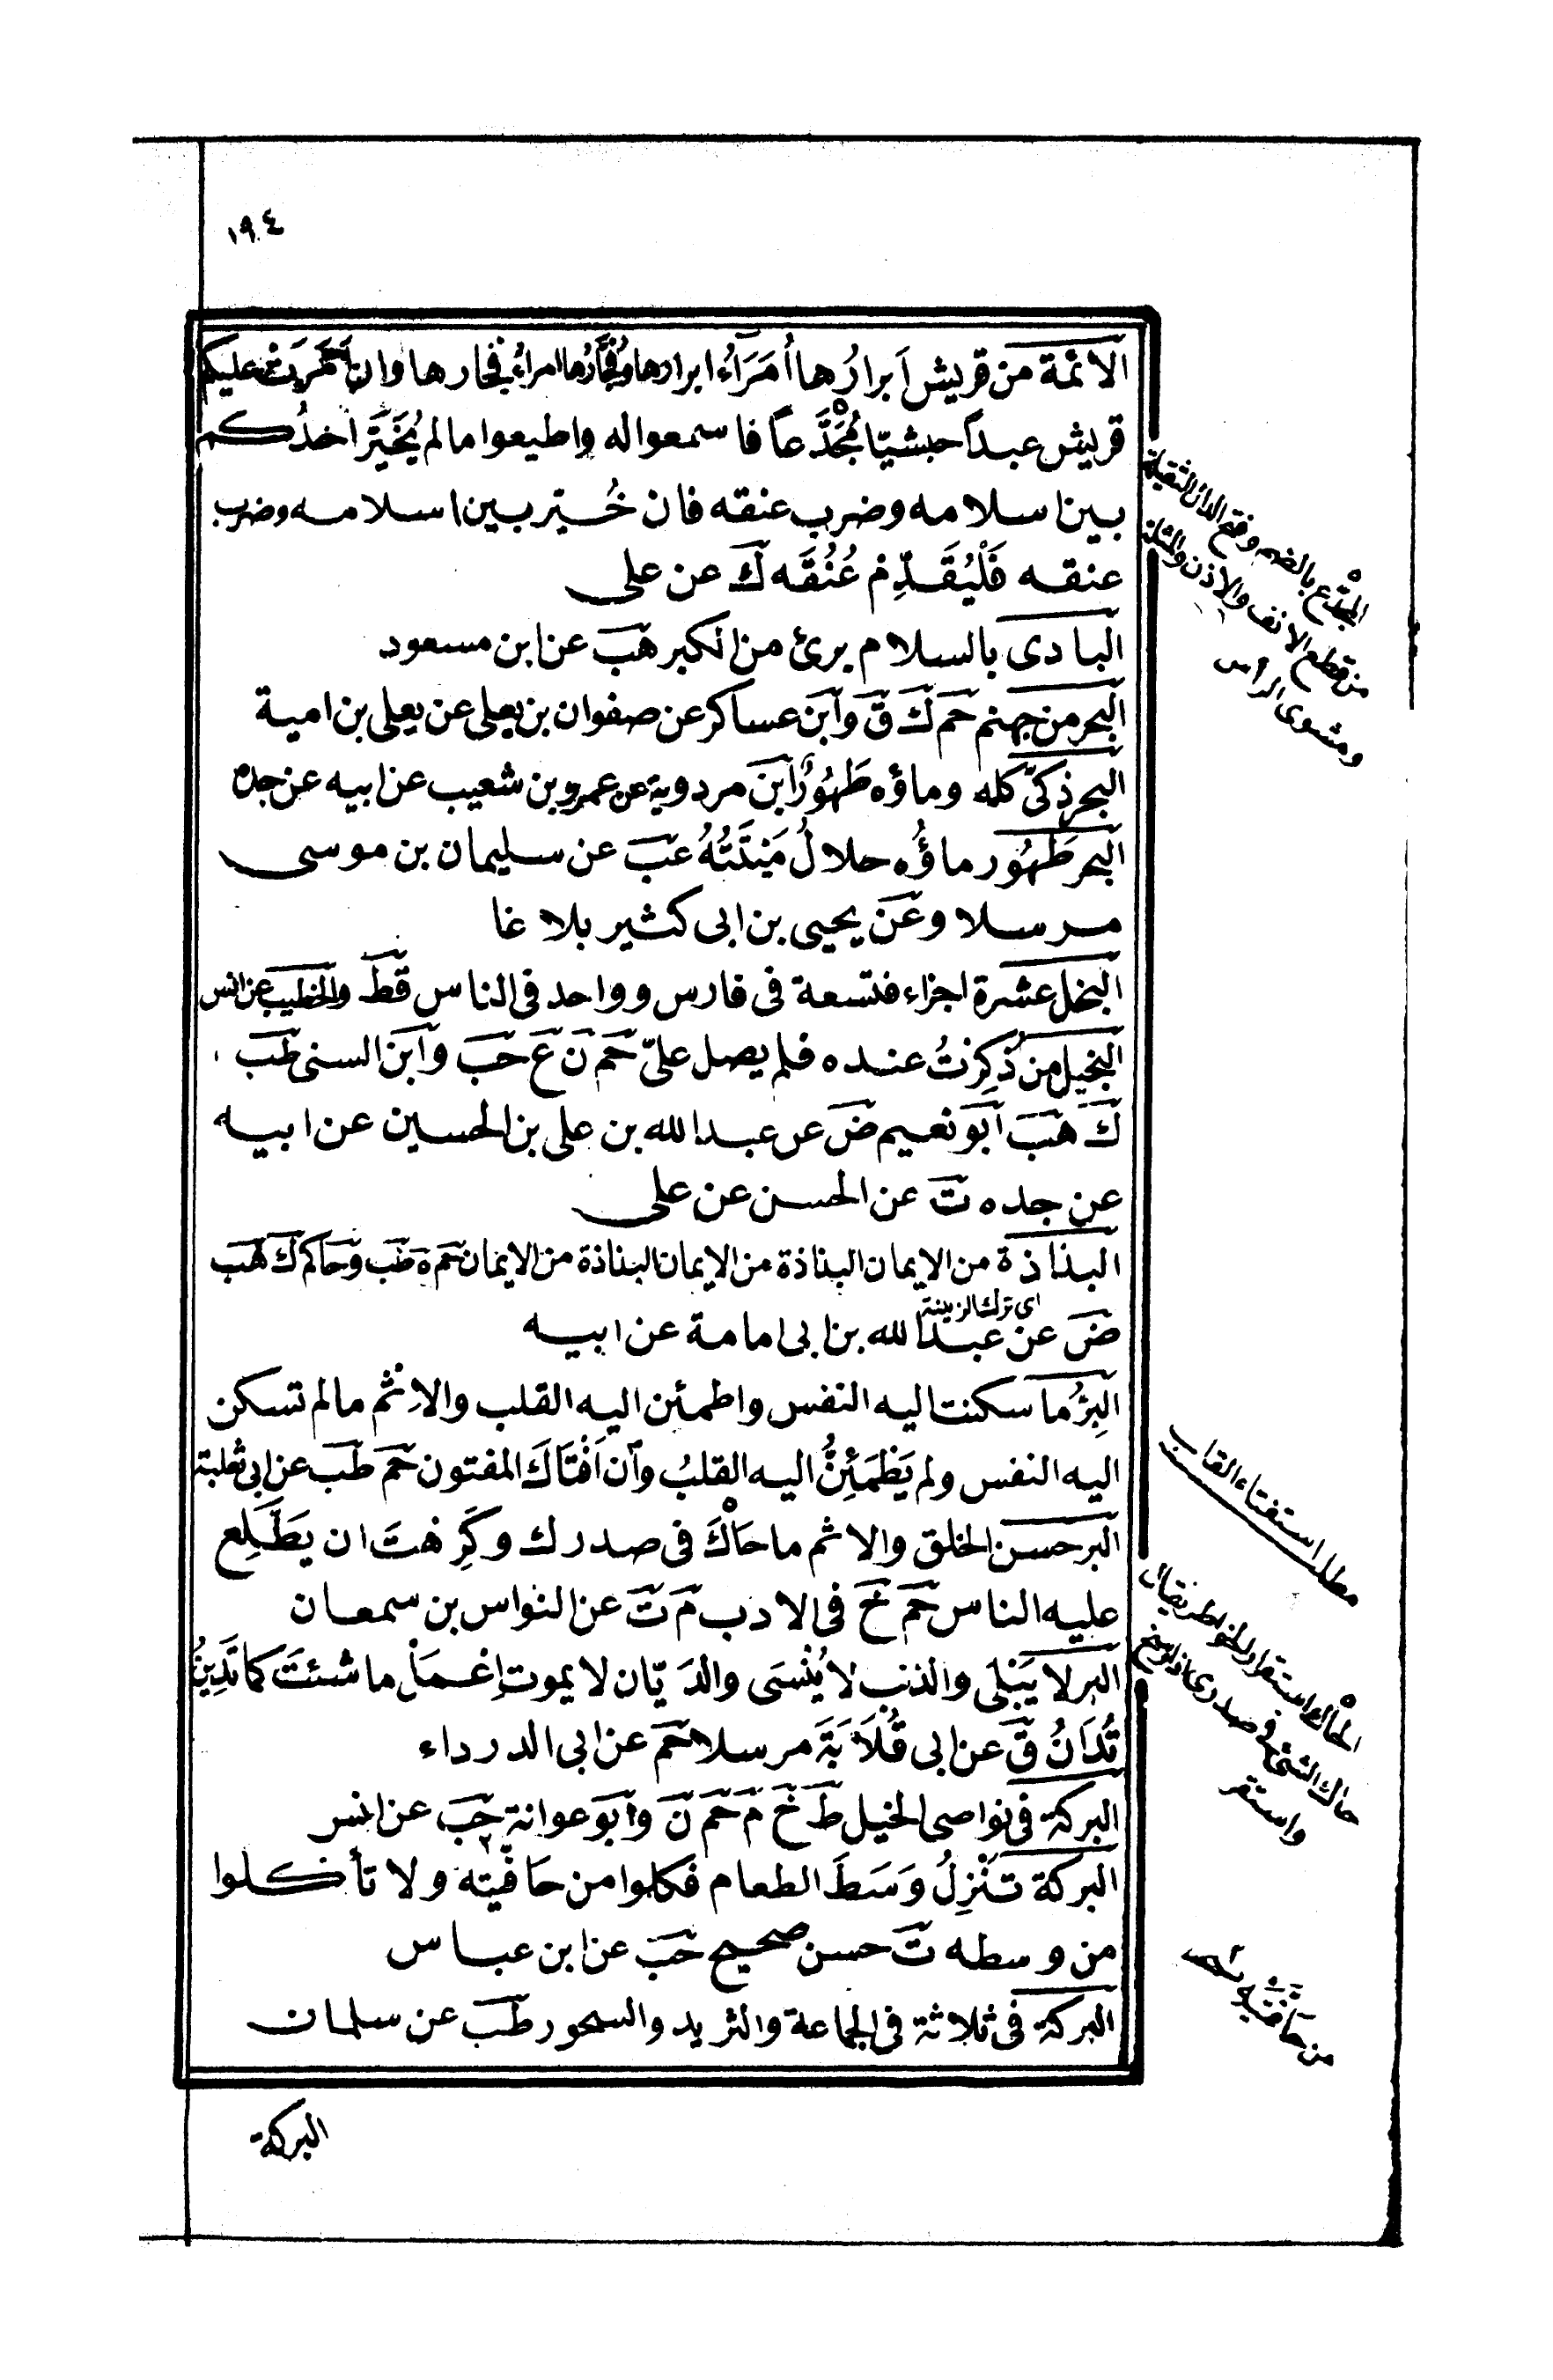 ١٩٤
الائمة من قريش اَبرارُها اُمَرَآءُ ابرارها وفُجَّارُها امراءُ فجارها وان اَمَّرَتْ عليكم
قريش عبداً حبشيّا مُجَدَّعاً فاسمعوا له واطيعوا مالم يُخَيَّر احدُكم
بين اسلامه وضرب عنقه فان خُيّر بين اسلامه وضرب
عنقه فَلْيُقَدِّم عُنُقَه ك عن على
البادى بالسلام برئ من الكبر هب عن ابن مسعود
البحر من جهنم حم ك ق وابن عساكر عن صفوان بن يعلى عن يعلى بن امية
البحر ذكىّ كله وماؤه طَهُورٌ ابن مردوية عن عمرو بن شعيب عن ابيه عن جده
البحر طَهُور ماؤُه حلالُ مَيْتَتُهُ عب عن سليمان بن موسى
مرسلا وعن يحيى بن ابى كثير بلاغا
البخل عشرة اجزاء فتسعة فى فارس وواحد فى الناس قط والخطيب عن انس
البخيل من ذُكِرْتُ عنده فلم يصل علىّ حم ن ع حب وابن السنى طب
ك هب ابو نعيم ض عن عبدالله بن على بن الحسين عن ابيه
عن جده ت عن الحسن عن على
البذاذة من الايمان البذاذة من الايمان البذاذة من الايمان حم ه طب وحاكم ك هب
اى ترك الزينة
ض عن عبدالله بن ابى امامة عن ابيه
البِرُّ ما سكنت اليه النفس واطمئن اليه القلب والاِثم مالم تسكن
اليه النفس ولم يَطْمَئِنُّ اليه القلبُ وان اَفْتَاكَ المفتون حم طب عن ابى ثعلبة
البر حسن الخلق والاثم ما حَاكَ فى صدرك وكَرِهْتَ ان يَطَّلِع
عليه الناس حم خ فى الادب م ت عن النواس بن سمعان
البر لا يَبْلَى والذنب لا يُنْسَى والدَيّان لا يموت اِعْمَلْ ما شئتَ كما تَدِينُ
تُدَانُ ق عن ابى قُلَابَةَ مرسلا حم عن ابى الدرداء
البركة فى نواصى الخيل ط خ م حم ن وابو عوانة حب عن انس
البركة تَنْزِلُ وَسَطَ الطعام فكلوا من حَافَيْته ولا تأكلوا
من وسطه ت حسن صحيح حب عن ابن عباس
البركة فى ثلاثة فى الجماعة والثريد والسحور طب عن سلمان
البركة
المجدّع بالضم وفتح الدال الثقيلة
من قطع الانف والاذن
ومشوى الرأس
مطلب استفتاء القلب
الحاك استقرار الخواطر يقال
حاك الشئ فى صدرى اذا رسخ
واستقر
من حَافَتَيْهِ نسخه